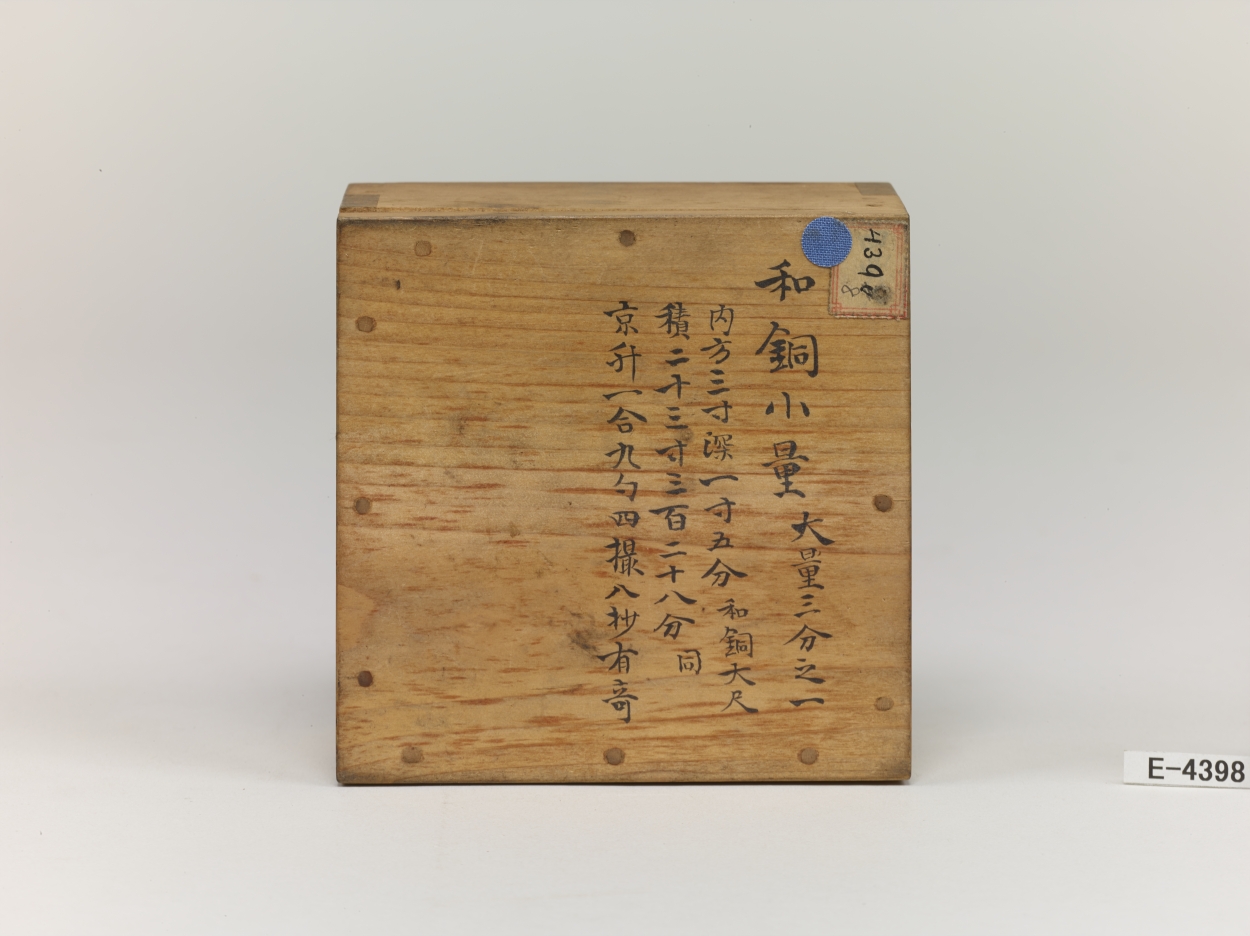 和銅小量 大量三分之一
内方三寸深一寸五分 和銅大尺
積二十三寸三百二十八分 同
京升一合九勺四撮八抄有奇
4398
E-4398